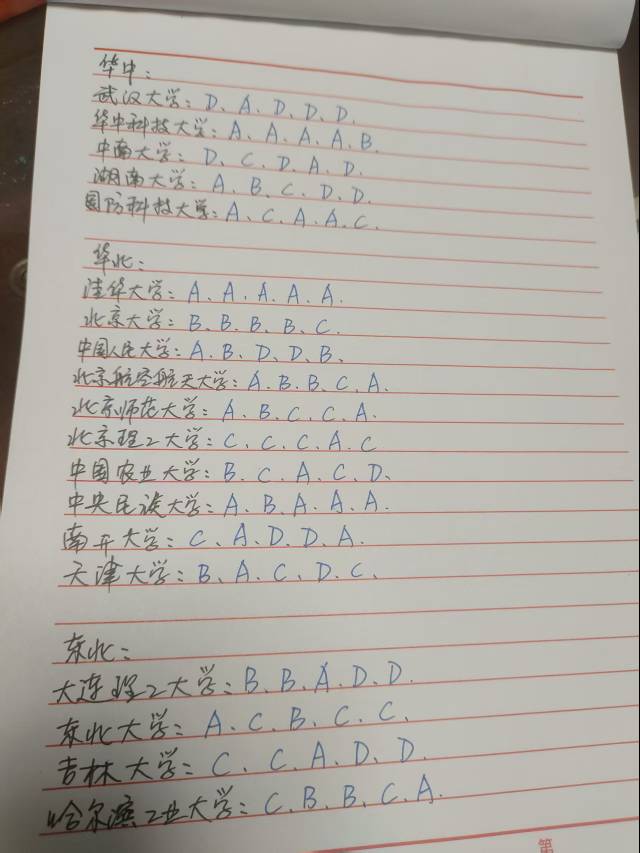 华中:
武汉大学: D、A、D、D、D.
华中科技大学: A、A、A、A、B.
中南大学: D、C、D、A、D.
湖南大学: A、B、C、D、D.
国防科技大学: A、C、A、A、C.
华北:
清华大学: A、A、A、A、A.
北京大学: B、B、B、B、C.
中国人民大学: A、B、D、D、B、
北京航空航天大学: A、B、B、C、A.
北京师范大学: A、B、C、C、A.
北京理工大学: C、C、C、A、C
中国农业大学: B、C、A、C、D、
中央民族大学: A、B、A、A、A.
南开大学: C、A、D、D、A.
天津大学: B、A、C、D、C、
东北:
大连理工大学: B、B、A、D、D.
东北大学: A、C、B、C、C、
吉林大学: C、C、A、D、D.
哈尔滨工业大学: C、B、B、C、A.
第